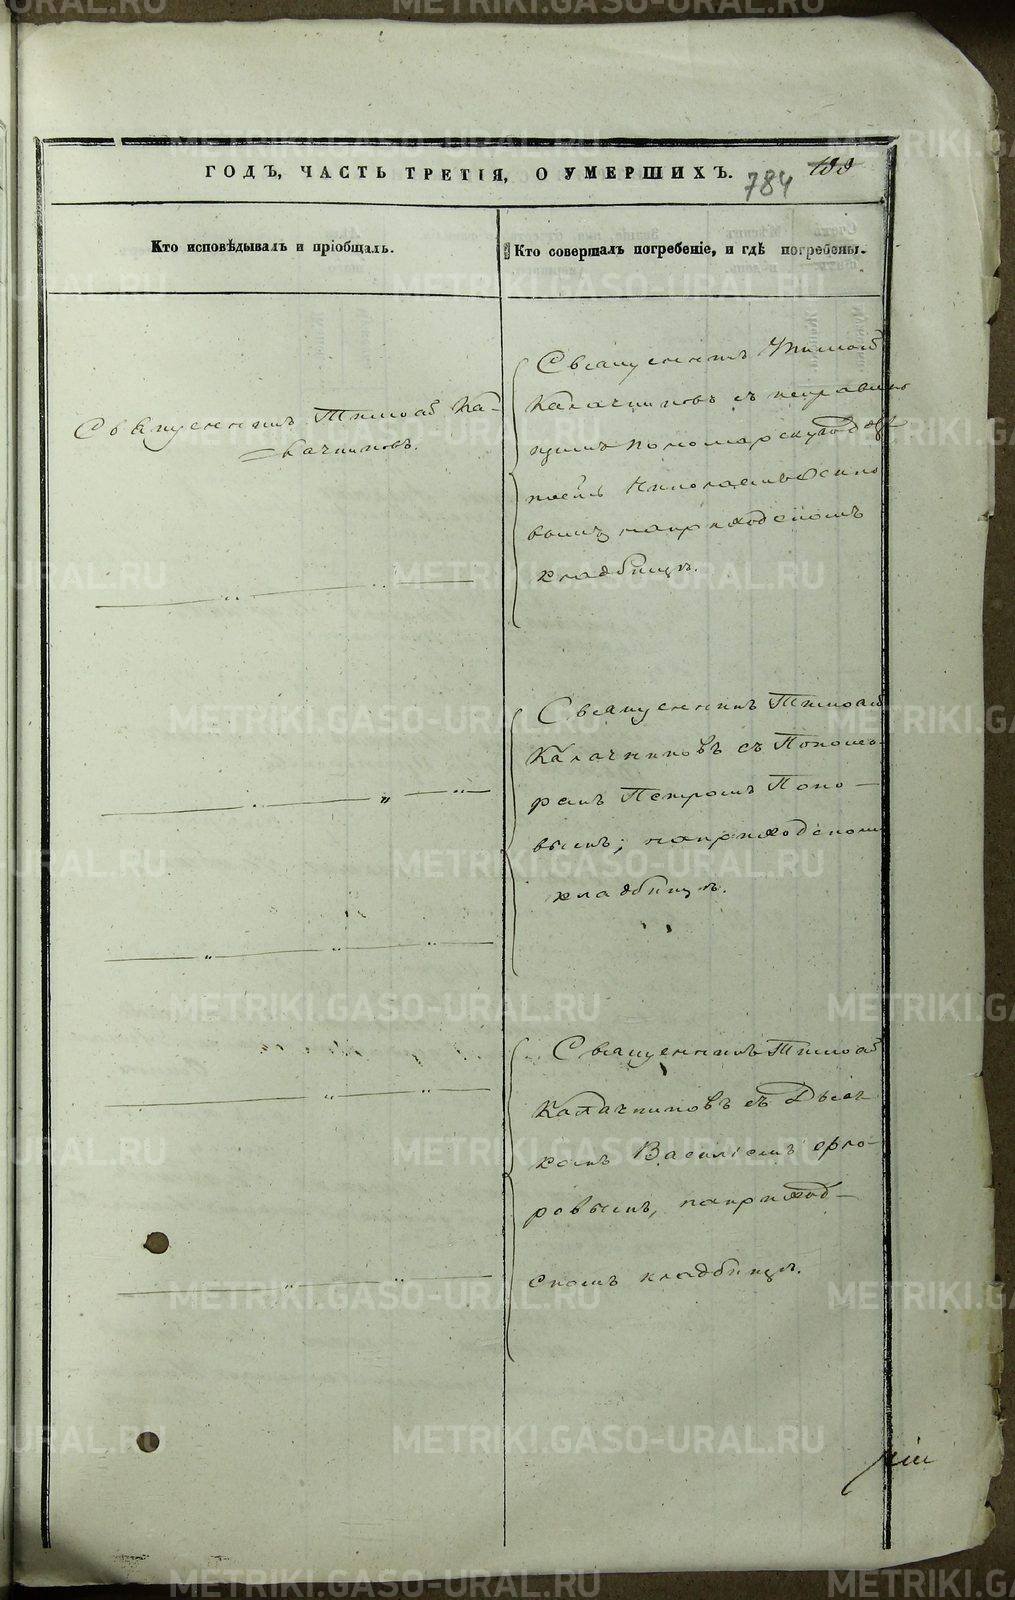 ГОДЪ, ЧАСТЬ ТРЕТІЯ, О УМЕРШИХЪ.
784
Кто исповѣдывалъ и пріобщалъ.
Кто совершалъ погребеніе, и гдѣ погребены.
Священникъ Тимоѳей Ка-
лачниковъ.
Священникъ Тимоѳей
Калачниковъ съ исправляю
щимъ пономарскую
Николаемъ
вымъ на приходскомъ
кладбищѣ.
Священникъ Тимоѳей
Калачниковъ съ Понома-
ремъ Петромъ Попо-
вымъ; на приходскомъ
кладбищѣ.
Священникъ Тимоѳей
Калачниковъ съ Дьяч
комъ Василіемъ
ровымъ, на приход-
скомъ кладбищѣ.
METRIKI.GASO-URAL.RU